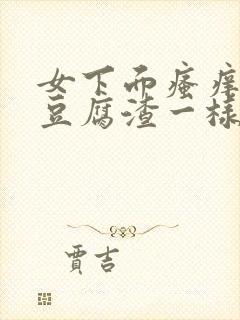 女下面瘙痒
豆腐渣一样
贾吉